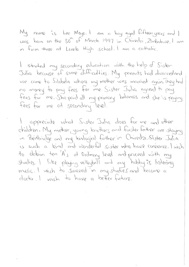 My name is Lee Mago. I am a boy aged fifteen years and I
was born on the 26th of March 1997 in Chivhu, Zimbabwe. I am
a form three at Lords High school. I am a catholic.
I started my secondary education with the help of Sister
Julia because of some difficulties. My parents had divorced and
we came to where my mother was married again, they had
no money to pay fees for me then Sister Julia agreed to pay
fees for me. She paid all my primary balances and she is paying
fees for me at secondary level.
I appreciate what Sister Julia does for me and other
children. My mother, young brothers and foster father are staying
in and my biological father in Sister Julia
is such a kind and wonderful sister who has concern. I wish
to obtain ten A's at Ordinary level and proceed with my
studies. I like playing volleyball and my hobby is listening
music. I wish to succeed in my studies and become a
doctor. I wish to have a better future.